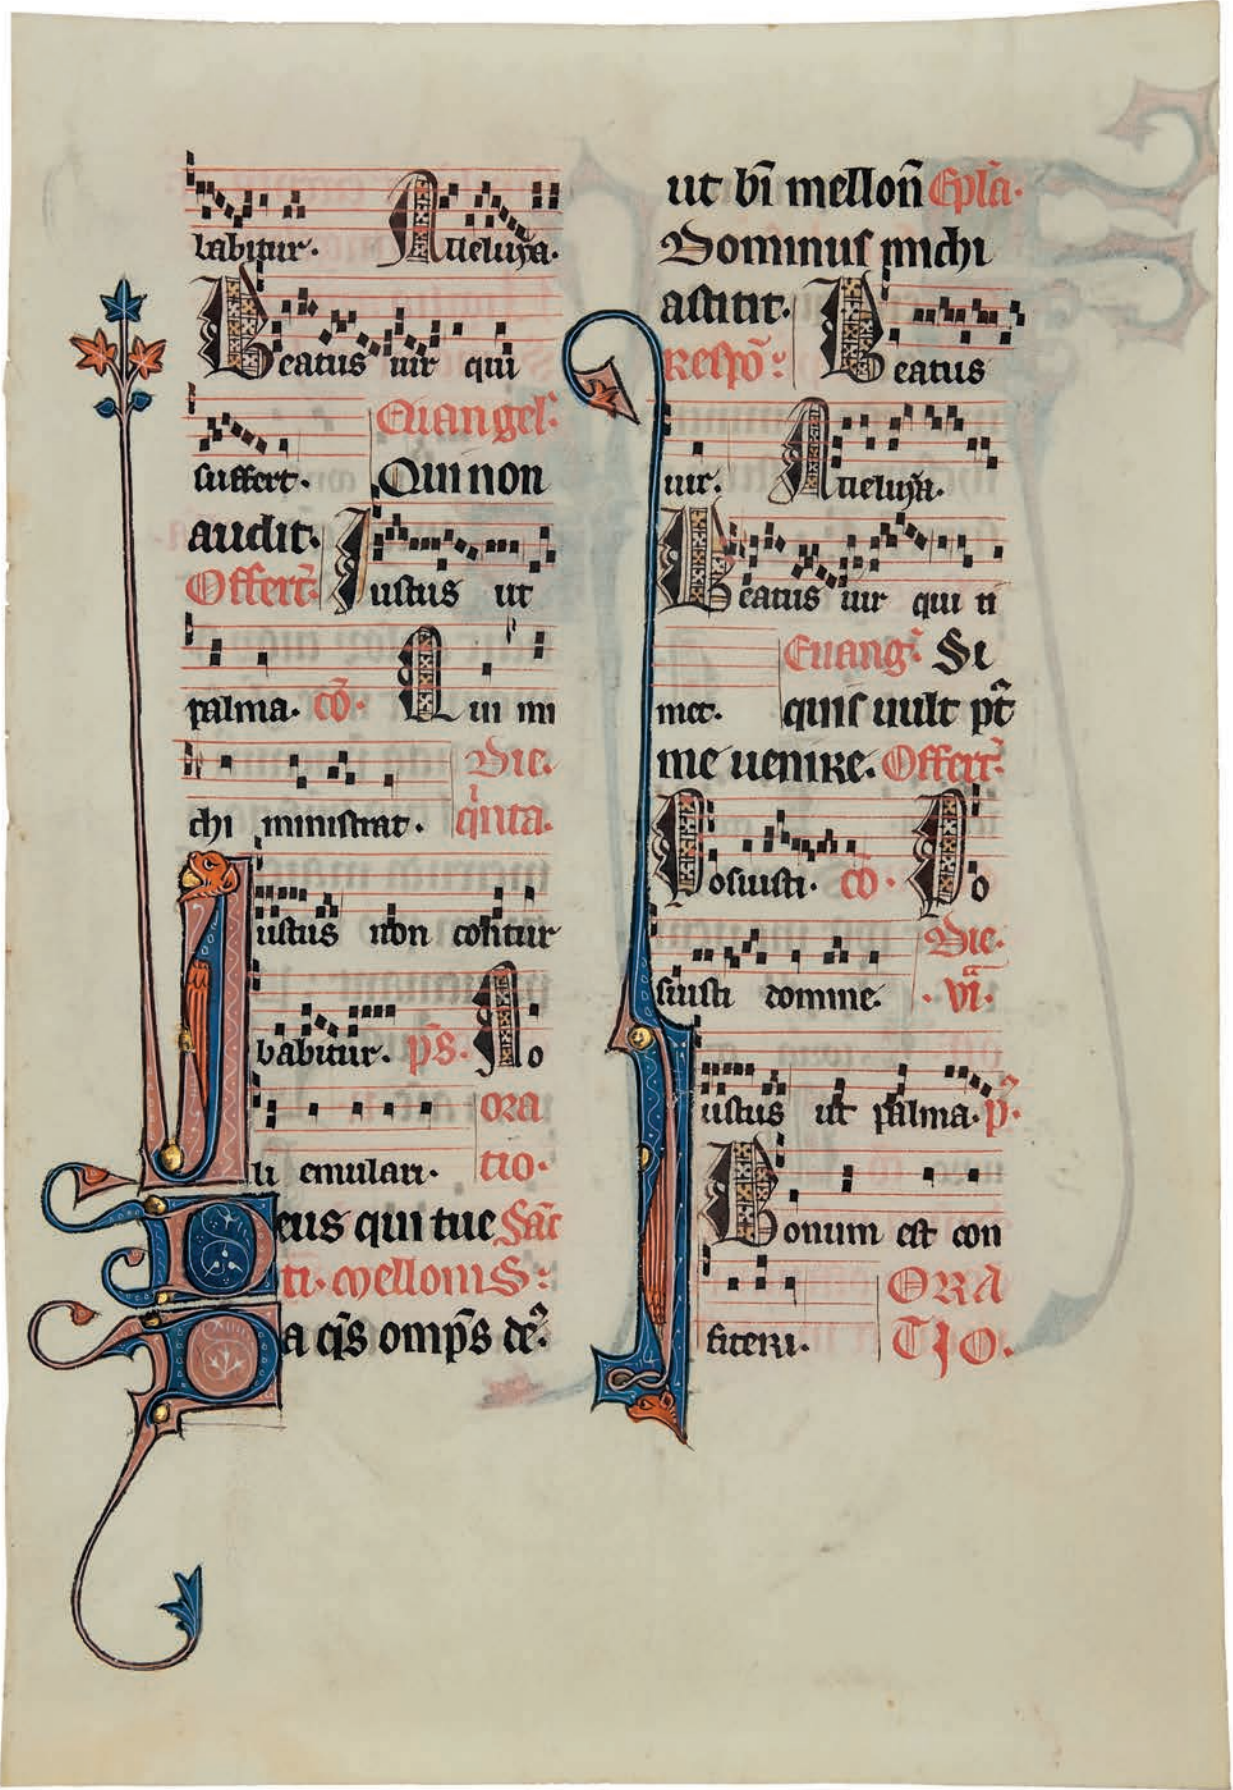 labitur. Alleluya.
Beatus uir qui
suffert. Euangel.
Qui non
audit. Iustus ut
Offert.
palma. cō. Qui mi
chi ministrat. Die.
q̇nta.
Iustus non contur
babitur. ps̄. No
li emulari. ora
tio.
Deus qui tue Sāc
ti. mellonis:
Da qs̄ omp̄s de.
ut bī mellon̄ Epl̄a.
Dominus michi
astitit. Beatus
Respō:
uir. Alleluya.
Beatus uir qui ti
met. Euang. Si
quis uult pt̄
me uenire. Offert.
Posuisti. cō. Po
suisti domine. Die.
.vi.ᵃ
Iustus ut palma. p̄.
Bonum est con
fiteri. ORA
TIO.